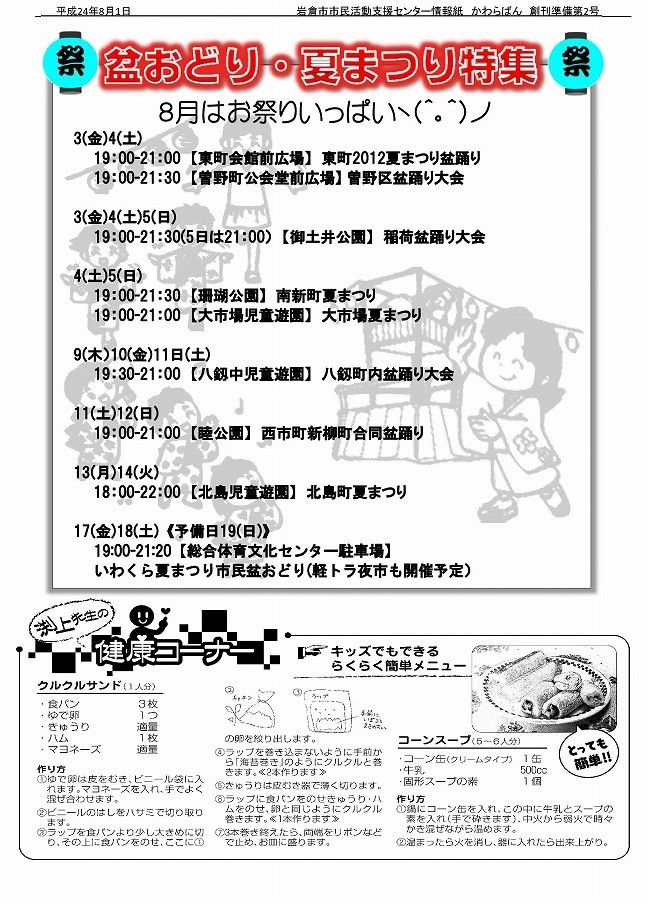 平成24年8月1日 岩倉市市民活動支援センター情報紙 かわらばん 創刊準備第2号
祭 盆おどり・夏まつり特集 祭
8月はお祭りいっぱいヽ(^。^)ノ
3(金)4(土)
19:00-21:00 【東町会館前広場】 東町2012夏まつり盆踊り
19:00-21:30 【曽野町公会堂前広場】 曽野区盆踊り大会
3(金)4(土)5(日)
19:00-21:30(5日は21:00) 【御土井公園】 稲荷盆踊り大会
4(土)5(日)
19:00-21:30 【珊瑚公園】 南新町夏まつり
19:00-21:00 【大市場児童遊園】 大市場夏まつり
9(木)10(金)11日(土)
19:30-21:00 【八剱中児童遊園】 八剱町内盆踊り大会
11(土)12(日)
19:00-21:00 【睦公園】 西市町新柳町合同盆踊り
13(月)14(火)
18:00-22:00 【北島児童遊園】 北島町夏まつり
17(金)18(土) 《予備日19(日)》
19:00-21:20 【総合体育文化センター駐車場】
いわくら夏まつり市民盆おどり(軽トラ夜市も開催予定)
渕上先生の
健康コーナー
キッズでもできる
らくらく簡単メニュー
クルクルサンド(1人分)
・食パン 3枚
・ゆで卵 1つ
・きゅうり 適量
・ハム 1枚
・マヨネーズ 適量
作り方
①ゆで卵は皮をむき、ビニール袋に入
れます。マヨネーズを入れ、手でよく
混ぜ合わせます。
②ビニールのはしをハサミで切り取り
ます。
③ラップを食パンより少し大きめに切
り、その上に食パンをのせ、ここに①
② ③ ラップ
の卵を絞り出します。
④ラップを巻き込まないように手前から
「海苔巻き」のようにクルクルと巻
きます。≪2本作ります≫
⑤きゅうりは皮むき器で薄く切ります。
⑥ラップに食パンをのせきゅうり・ハ
ムをのせ、卵と同じようにクルクル
巻きます。≪1本作ります≫
⑦3本巻き終えたら、両端をリボンなど
で止め、お皿に盛ります。
とっても
簡単!!
コーンスープ(5～6人分)
・コーン缶(クリームタイプ) 1缶
・牛乳 500cc
・固形スープの素 1個
作り方
①鍋にコーン缶を入れ、この中に牛乳とスープの
素を入れ(手で砕きます)、中火から弱火で時々
かき混ぜながら温めます。
②温まったら火を消し、器に入れたら出来上がり。